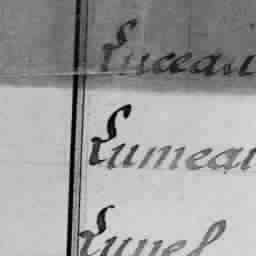 Luceau
Lumeau
Lunel